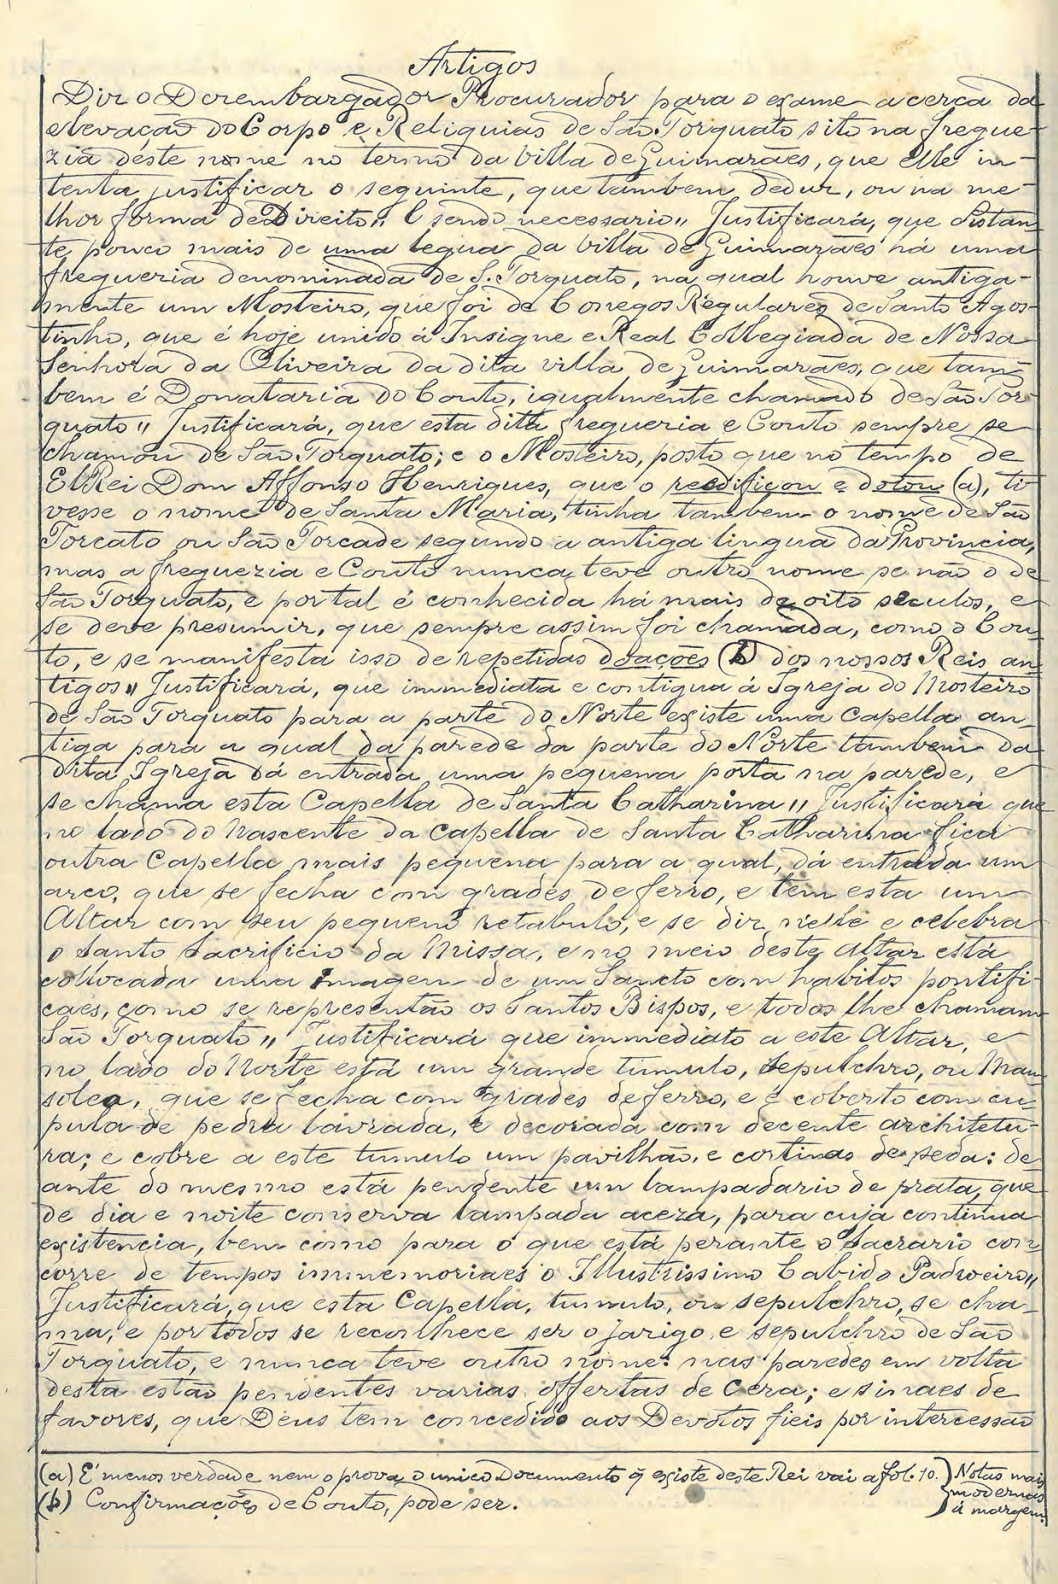 Artigos
Diz o Dezembargador Procurador para o exame acerca da
elevação do Corpo e Reliquias de São Torquato sito na fregue-
zia déste nome no termo da villa de Guimarães, que elle in-
tenta justificar o seguinte, que tambem deduz, ou na me-
lhor forma de Direito,, E sendo necessario,, Justificará, que distan-
te, pouco mais de uma legua da villa de Guimarães há uma
freguezia denominada de S. Torquato, na qual houve antiga-
mente um Mosteiro, que foi de Conegos Regulares de Santo Agos-
tinho, que é hoje unido á Insigne e Real Collegiada de Nossa
Senhora da Oliveira da dita villa de Guimarães, que tam-
bem é Donataria do Couto, igualmente chamado de São Tor-
quato,, Justificará, que esta dita freguezia e Couto sempre se
chamou de São Torquato; e o Mosteiro, posto que no tempo de
ElRei Dom Affonso Henriques, que o reedificou e dotou (a), ti-
vesse o nome de Santa Maria, tinha tambem o nome de São
Torcato ou São Torcade segundo a antiga lingua da Provincia,
mas a freguezia e Couto nunca teve outro nome se não o de
São Torquato, e por tal é conhecida há mais de oito seculos, e
se deve presumir, que sempre assim foi chamada, como o Cou-
to, e se manifesta isso de repetidas doações (b) dos nossos Reis an-
tigos,, Justificará, que immediata e contigua á Igreja do Mosteiro
de São Torquato para a parte do Norte existe uma Capella an-
tiga para a qual da parede da parte do Norte tambem da
dita Igreja dá entrada uma pequena porta na parede, e
se chama esta Capella de Santa Catharina,, Justificará que
no lado do Nascente da Capella de Santa Catharina fica
outra Capella mais pequena para a qual, dá entrada um
arco, que se fecha com grades de ferro, e tem esta um
Altar com seu pequeno retabulo, e se diz n'elle e celebra
o Santo Sacrificio da Missa, e no meio deste Altar está
collocada uma Imagem de um Sancto com habitos pontifi-
caes, como se representão os Santos Bispos, e todos lhe chamam
São Torquato,, Justificará que immediato a este Altar, e
no lado do Norte está um grande tumulo, sepulchro, ou Mau-
soleo, que se fecha com grades de ferro, e é coberto com cu-
pula de pedra lavrada, e decorada com decente architetu-
ra; e cobre a este tumulo um pavilhão, e cortinas de seda: de-
ante do mesmo está pendente um lampadario de prata, que
de dia e noite conserva lampada aceza, para cuja continua
existencia, bem como para o que está perante o Sacrario con-
corre de tempos immemoriaes o Illustrissimo Cabido Padroeiro,,
Justificará, que esta Capella, tumulo, ou sepulchro, se cha-
ma, e por todos se reconhece ser o jazigo e sepulchro de São
Torquato, e nunca teve outro nome: nas paredes em volta
desta estão pendentes varias offertas de Cera; e sinaes de
favores, que Deus tem concedido aos Devotos fieis por intercessão
(a) É menos verdade nem o prova o unico Documento q̃ existe deste Rei vai a fol. 10.
(b) Confirmações de Couto, pode ser.
Notas mais
modernas
á margem.